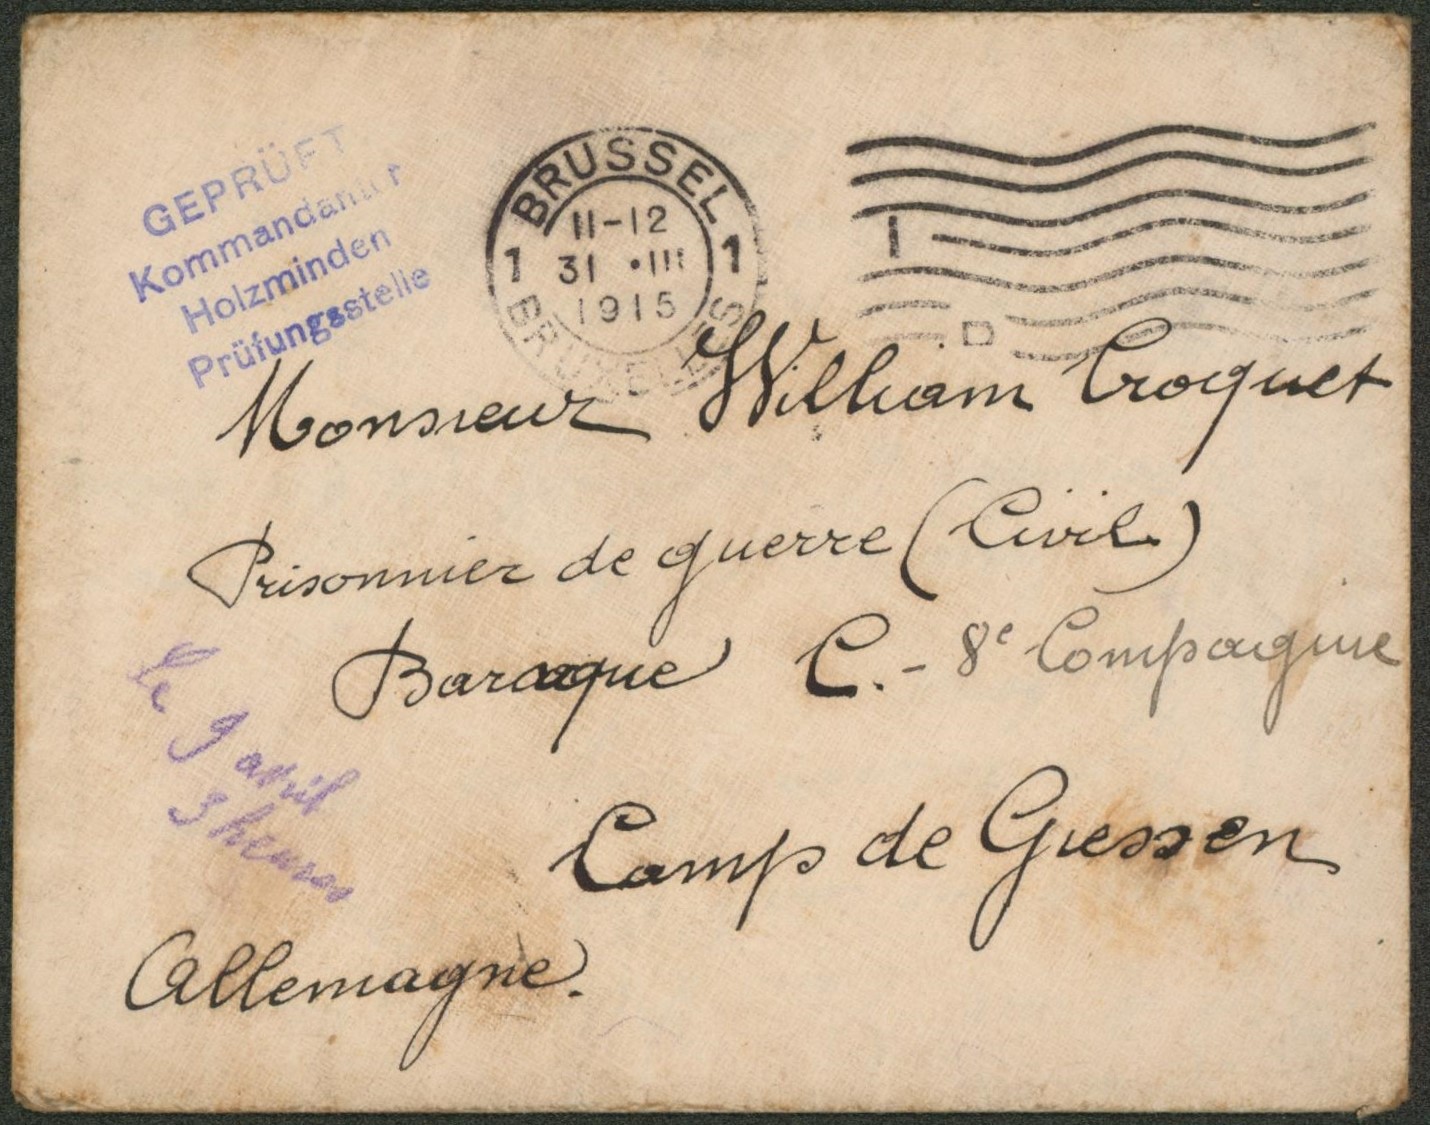 GEPRÜFT
Kommandantur
Holzminden
Prüfungsstelle
BRUSSEL
1 1
11-12
31 •III
1915
BRUXELLES
Monsieur William Croquet
Prisonnier de guerre (Civil)
Baraque C. - 8e Compagnie
Camp de Giessen
Allemagne.
le 9 avril
3 heures